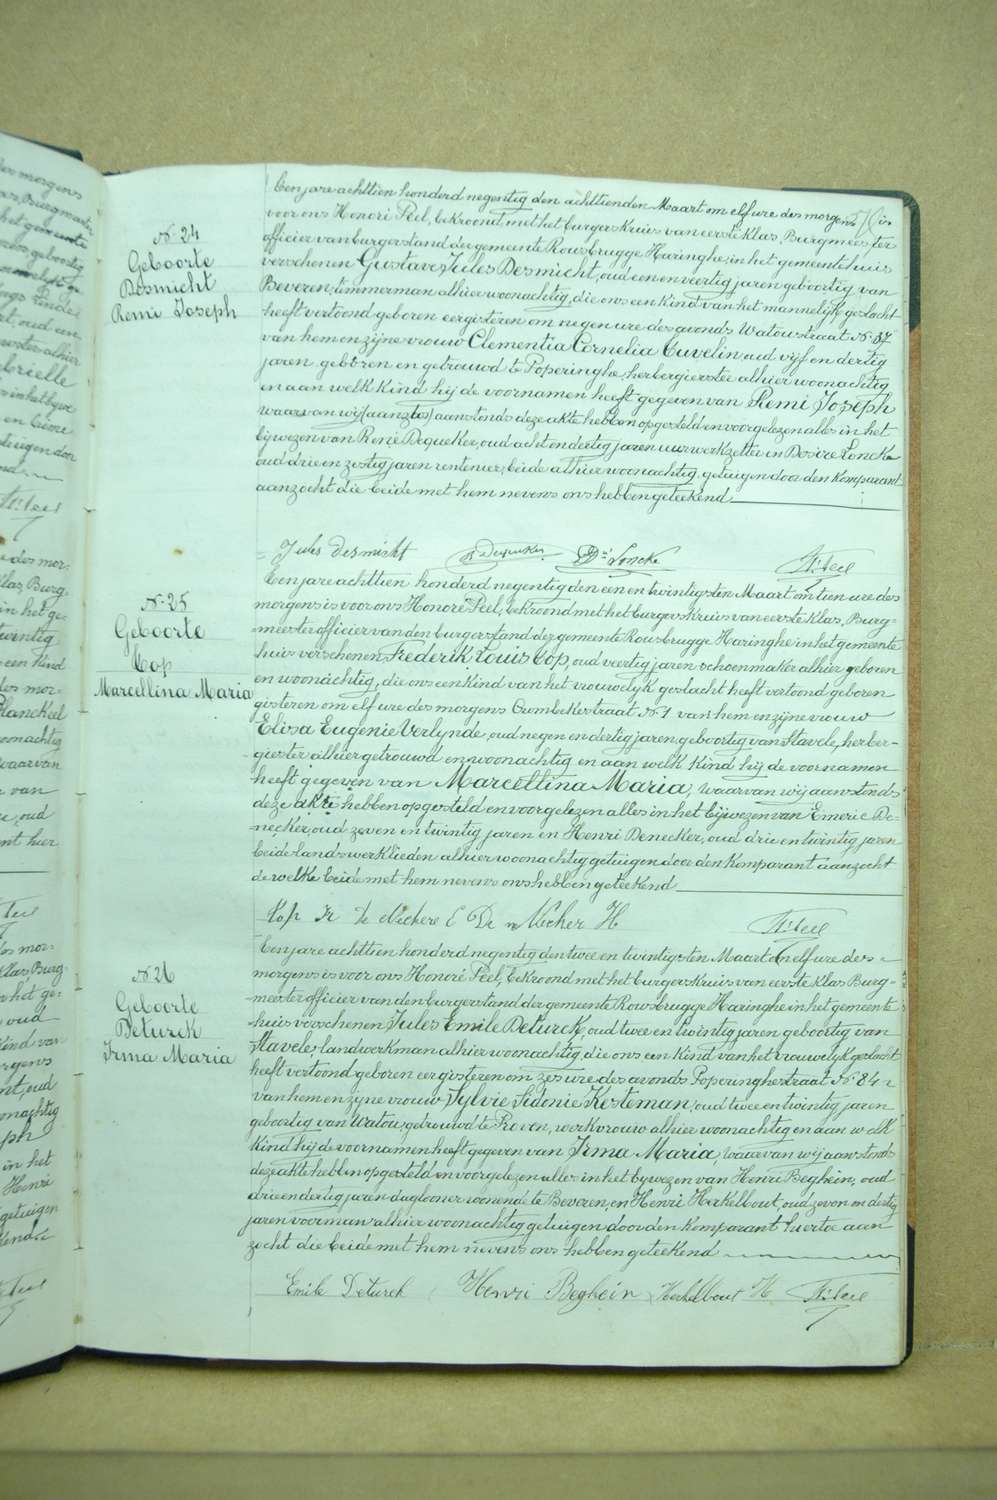 N. 24
Geboorte
Desmicht
Remi Joseph
Een jare achttien honderd negentig den achttienden Maart om elf ure des morgens is
voor ons Honoré Peel, bekroond met het burgerskruis van eerste Klas, Burgmeester
officier van burgerstand der gemeente Rousbrugge Haringhe, in het gemeentehuis
verschenen Gustave Jules Desmicht, oud een en veertig jaren geboortig van
Beveren, timmerman alhier woonachtig, die ons een kind van het mannelijk geslacht
heeft vertoond geboren eergisteren om negen ure des avonds Watoustraat N. 37
van hem en zijne vrouw Clementia Cornelia Cuvelin oud vijf en dertig
jaren geboren en getrouwd te Poperinghe, herbergierstee alhier woonachtig
en aan welk kind hij de voornamen heeft gegeven van Remi Joseph
waarvan wij aanstonds deze akte hebben opgesteld en voorgelezen alles in het
bijwezen van René Dequeker, oud acht en dertig jaren uurwerkzetter en Desiré Loncke
oud drie en zestig jaren rentenier, beide alhier woonachtig, getuigen door den Komparant
aanzocht die beide met hem nevens ons hebben geteekend
Jules Desmicht R Dequeker Dré Loncke H. Peel
N. 25
Geboorte
Cop
Marcellina Maria
Een jare achttien honderd negentig den een en twintigsten Maart om tien ure des
morgens is voor ons Honoré Peel, bekroond met het burgerskruis van eerste Klas, Burg-
meester officier van den burgerstand der gemeente Rousbrugge Haringhe in het gemeente
huis verschenen Frederik Louis Cop, oud veertig jaren schoenmaker alhier geboren
en woonachtig, die ons een kind van het vrouwelijk geslacht heeft vertoond geboren
gisteren om elf ure des morgens Crombekestraat N. 1 van hem en zijne vrouw
Elisa Eugenie Verlynde, oud negen en dertig jaren, geboortig van Stavele, herber-
gierster alhier getrouwd en woonachtig en aan welk kind hij de voornamen
heeft gegeven van Marcellina Maria, waarvan wij aanstonds
deze akte hebben opgesteld en voorgelezen alles in het bijwezen van Emeric De-
necker, oud zeven en twintig jaren en Henri Denecker, oud drie en twintig jaren
beide landswerklieden alhier woonachtig getuigen door den Komparant aanzocht
dewelke beide met hem nevens ons hebben geteekend
Kop Fr De Neckere E De Necker H H. Peel
N. 26
Geboorte
Deturck
Irma Maria
Een jare achttien honderd negentig den twee en twintigsten Maart om elf ure des
morgens is voor ons Honoré Peel, bekroond met het burgerskruis van eerste Klas Burg-
meester officier van den burgerstand der gemeente Rousbrugge Haringhe in het gemeente
huis verschenen Jules Emile Deturck, oud twee en twintig jaren geboortig van
Stavele, landwerkman alhier woonachtig, die ons een kind van het vrouwelijk geslacht
heeft vertoond geboren eergisteren om zes ure des avonds Poperinghestraat N. 84
van hem en zijne vrouw Sylvie Sidonie Kesteman, oud twee en twintig jaren
geboortig van Watou, getrouwd te Proven, werkvrouw alhier woonachtig en aan welk
kind hij de voornamen heeft gegeven van Irma Maria, waarvan wij aanstonds
deze akte hebben opgesteld en voorgelezen alles in het bijwezen van Henri Beghein, oud
drie en dertig jaren dagloonerwonende te Beveren, en Henri Herkelbout, oud zeven en dertig
jaren voerman alhier woonachtig getuigen door den Komparant hiertoe aan
zocht die beide met hem nevens ons hebben geteekend
Emile Deturck Henri Beghein Herkelbout H H. Peel